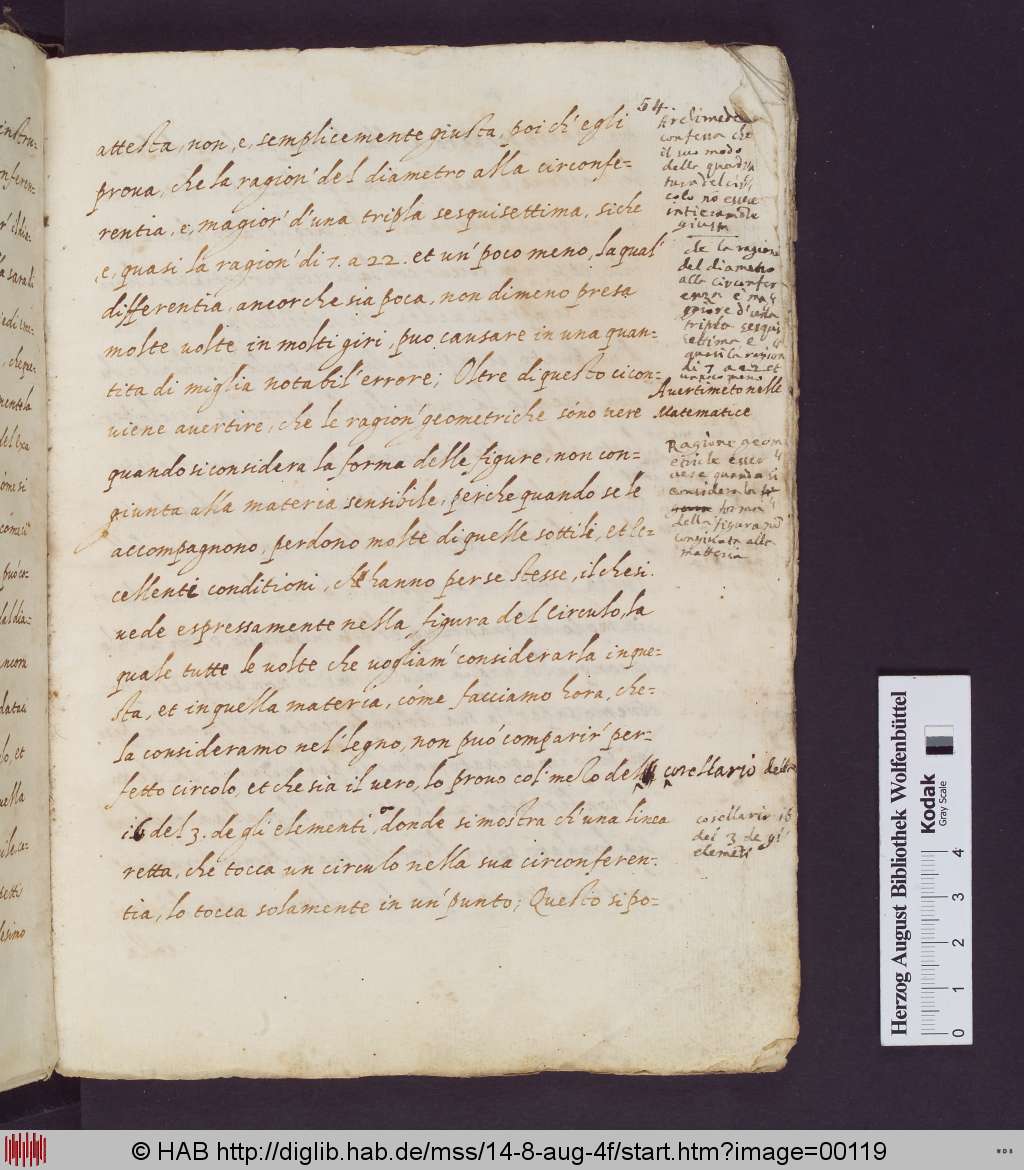 54.
attesta, non, e, semplicemente giusta, poi ch' egli
proua, che la ragion' del diametro alla circonfe-
rentia, e, magior' d'una tripla sesquisettima, si che
e, quasi la ragion' di 7. a 22. et un' poco meno, la qual'
differentia, ancor che sia poca, non dimeno presa
molte volte in molti giri, puo causare in una quan-
tita di miglia notabil' errore; Oltre di questo ci con-
uiene auertire, che le ragion' geometriche sono vere
quando si considera la forma delle figure, non con-
giunta alla materia sensibile, perche quando se le
accompagnono, perdono molte di quelle sottili, et ec-
cellenti conditioni, ch' hanno per se stesse, il che si
uede espressamente nella figura del Circulo, la
quale tutte le volte che vogliam' considerarla in que-
sta, et in quella materia, cóme facciamo hora, che-
la consideramo nel' legno, non può comparir' per-
fetto circolo, et che sia il vero, lo prouo col' mezo del corellario della
16 del 3. de gli elementi, donde si mostra ch' una linea
retta, che tocca un circulo nella sua circonferen-
tia, lo tocca solamente in un' punto; Questo si po-
Archimede
confessa che
il suo modo
della quadra
tura del cir
colo nõ essere
intieramẽte
giusta
che la ragione
del diametro
alla circonfer
enza è ma
ggiore d'una
tripla sesqui
settima e
quasi la ragion
di 7 a 22 et
un poco meno
Auertimẽto nelle
Matematice
Ragione geom
etriche esser
uere quando si
considera la
forma
della figura nõ
congiunta alla
matteria
corellario 16
del 3 de gl'
elemẽti
Herzog August Bibliothek Wolfenbüttel
Kodak
Gray Scale
0 1 2 3 4
© HAB http://diglib.hab.de/mss/14-8-aug-4f/start.htm?image=00119